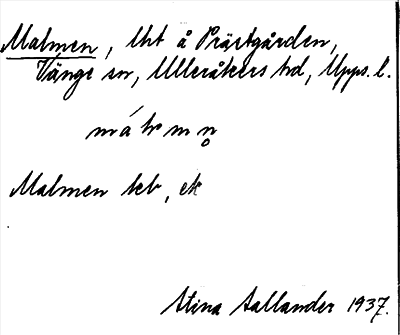 Malmen, lht å Prästgården,
Vänge sn, Ulleråkers hd, Upps. l.
Malmen leb, ek
Stina Sallander 1937.